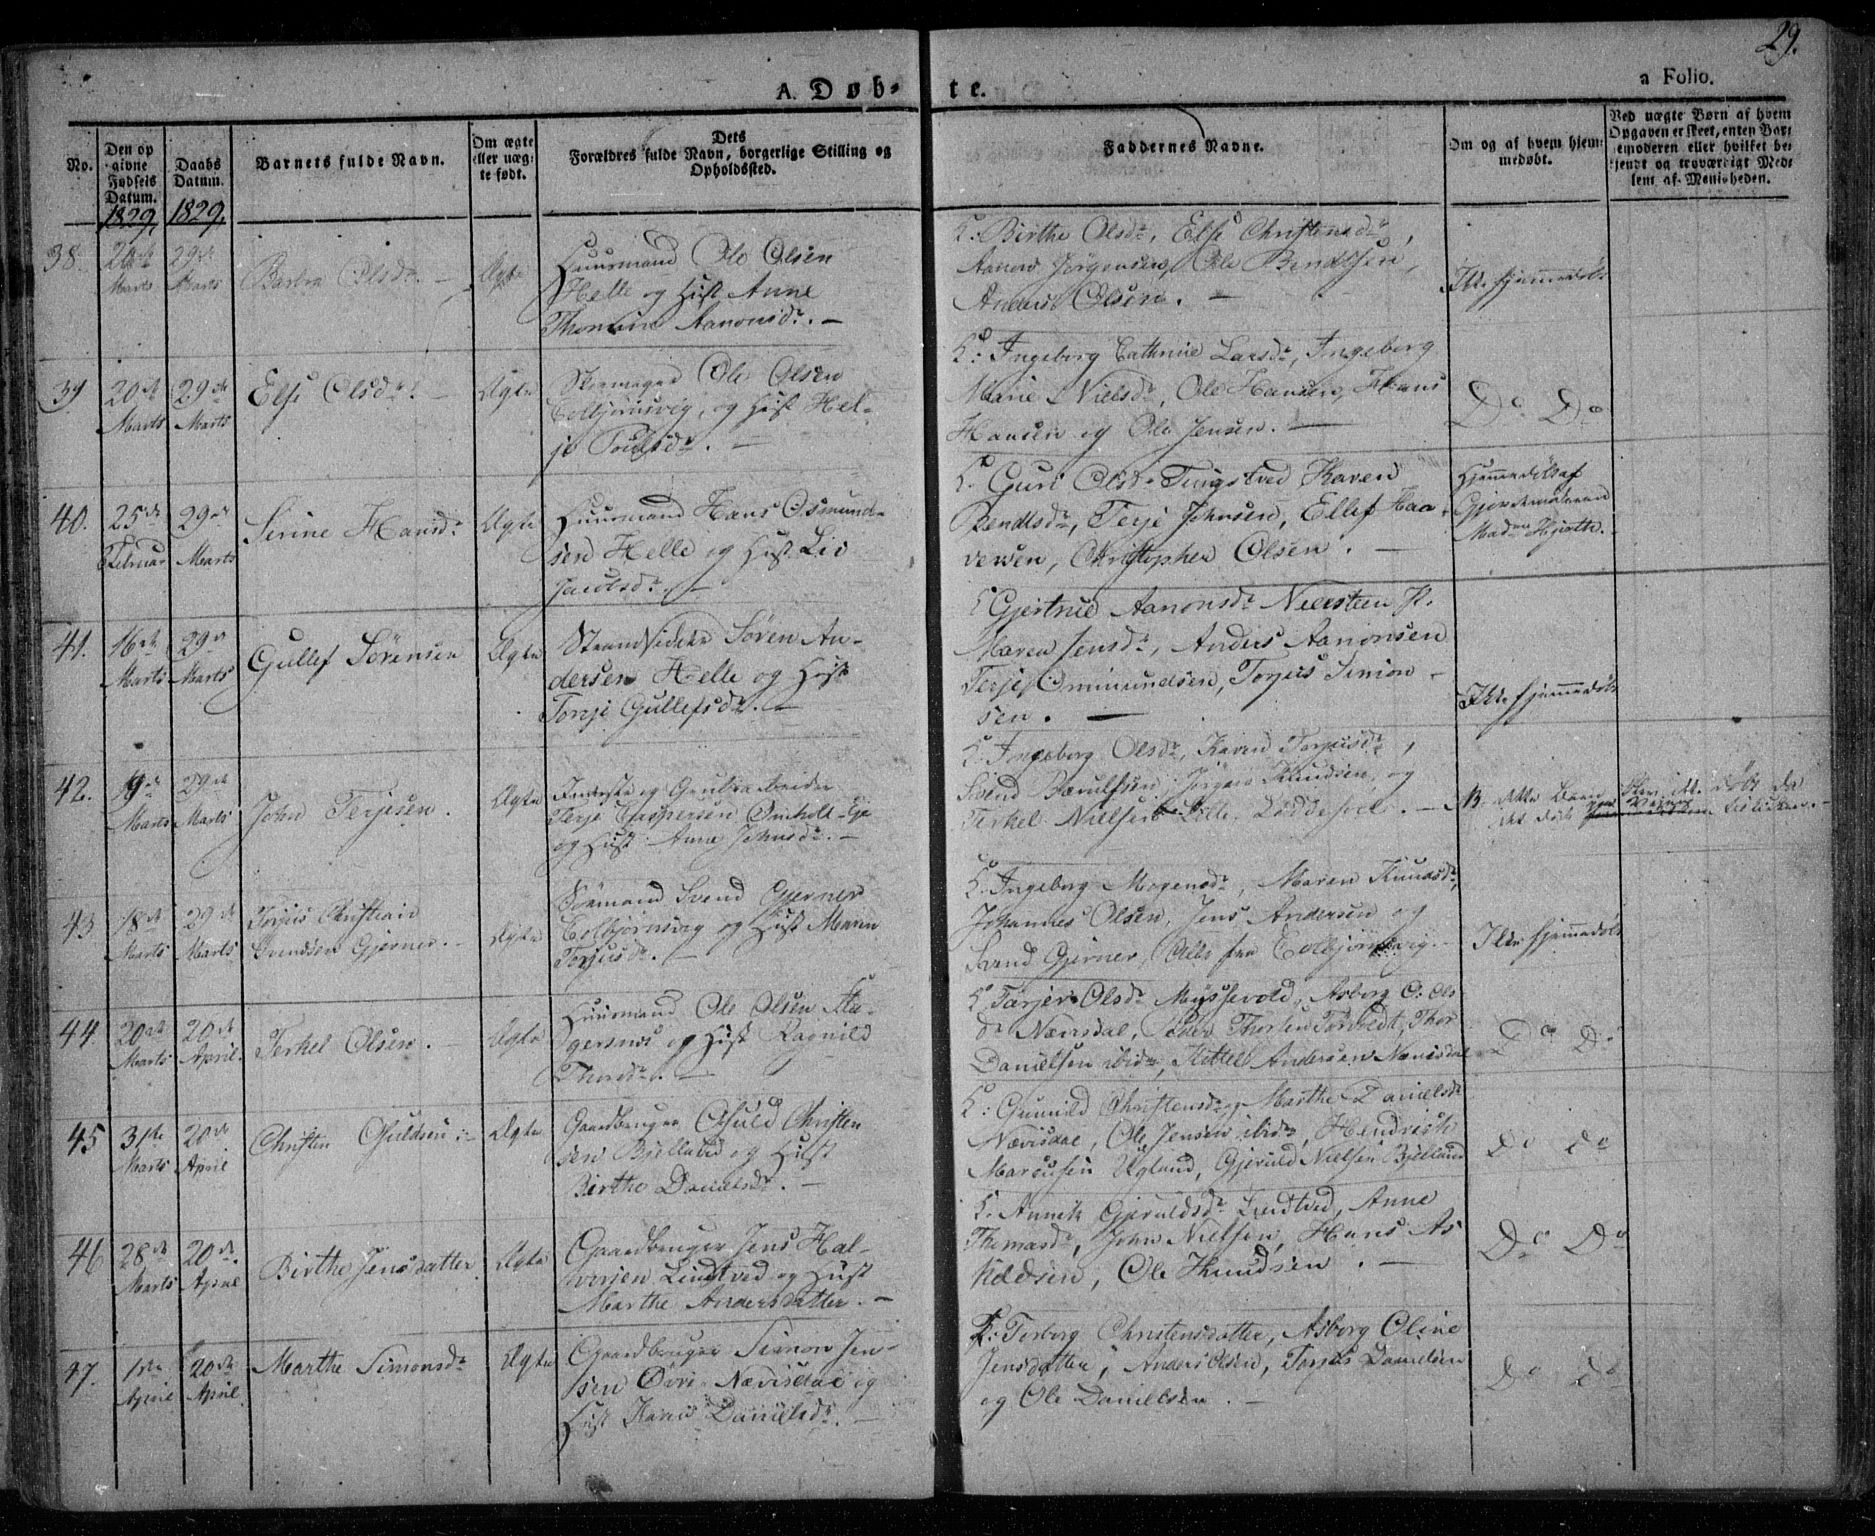 29.
a Folio.
A. Døb-
te.
No.
Den op
givne
Fødsels
Datum.
1829.
Daabs
Datum.
1829.
Barnets fulde Navn.
Om ægte
eller uæg-
te født.
Dets
Forældres fulde Navn, borgerlige Stilling og
Opholdssted.
Faddernes Navne.
Om og af hvem hjem-
medøbt.
Ved uægte Børn af hvem
Opgaven er skeet, enten Bar-
nemoderen eller hvilket be-
kjendt og troværdigt Med-
lem af Menigheden.
38.
20de
Marts
29de
Marts
Barbra Olsdr. –
Ægte
Huusmand Ole Olsen
Helle og Hust Anne
Thomine Aanonsdr. –
K: Birthe Olsdr, Else Christensdr,
Aanon Jørgensen, Ole Bendtsen,
Anders Olsen. –
Ikke hjemmedøbt
39
20de
Marts
29de
Marts
Else Olsdr. –
Ægte
Ole Olsen
Colbjørnsvig, og Hust Hel-
je
K: Ingeborg Cathrine Larsdr, Ingeborg
Marie Nielsdr, Ole Hansen, Hans
Hansen og Ole Jensen. –
Do Do
40.
25de
Februar
29de
Marts
Serine Hansdr
Ægte
Huusmand Hans Osmund-
sen Helle og Hust Liv
Jacobsdr. –
K. Guri Olsdr Tingstved Karen
Bendtsdr, Terje Johnsen, Ellef Haa-
versen, Christopher Olsen. –
Hjemmedøbt af
Gjordemoderen
Madm Hjorth.
41.
16de
Marts
29de
Marts
Gullef Sørensen
Ægte
Strandsidder Søren An-
dersen Helle og Hust
Torje Gullefsdr. –
K Gjertrud Aanonsdr
Maren Jensdr, Anders Aanonsen
Terje Ommundsen, Torjus Simon-
sen. –
Ikke hjemmedøbt
42.
9de
Marts
29de
Marts
John Terjesen.
Ægte
Inderste og Grubearbeider
Terje Caspersen
og Hust Anne Johnsdr. –
K. Ingeborg Olsdr, Karen Torjusdr,
Svend Jørgen Knudsen, og
Terkel Nielsen, Alle Løddesøl. –
NB. dette Barn blev ikke døbt da
det døde
43
18de
Marts
29de
Marts
Torjus Christian
Svendsen Gjerner. –
Ægte
Sømand Svend Gjerner
Colbjørnsvig og Hust Maren
Torjusdr. –
K. Ingeborg Mogensdr, Maren Knudsdr,
Johannes Olsen, Jens Andersen og
Svend Gjerner, Alle fra Colbjørnsvig. –
Ikke hjemmedøbt
44.
20de
Marts
20de
April.
Terkel Olsen. –
Ægte
Huusmand Ole Olsen Ha-
gersnes og Hust Ragnild
Thorsdr. –
K Tarjer Olsdr Myssevold, Asborg Ols
dr Nævisdal, Thor
Danielsen ibid, Kittel Andersen Nævisdal
Do Do
45
31te
Marts
20de
April
Christen Osuldsen. –
Ægte
Gaardbruger Osuld Christen
sen Bjelland og Hust
Birthe Danielsdr. –
K: Gunild Christensdr, Marthe Danielsdr
Nævisdal, Ole Jensen ibid, Hendrich
Marcusen Ugland, Gjeruld Nielsen Bjelland
Do Do
46
28de
Marts
20de
April
Birthe Jensdatter
Ægte
Gaardbruger Jens Hal-
vorsen Lindtved og Hust
Marthe Andersdatter. –
K. Annik Gjeruldsdr Lindtved, Anne
Thomasdr, John Nielsen, Hans As
kildsen, Ole Knudsen. –
Do Do
47.
1ste
April
20de
April.
Marthe Simonsdr
Ægte
Gaardbruger Simon Jen-
sen Øvre Nævisdal og
Hust Karen Danielsdr. –
K: Torborg Christensdatter, Asborg Oline
Jensdatter, Anders Olsen, Torjus Danielsen
og Ole Danielsen. –
Do Do